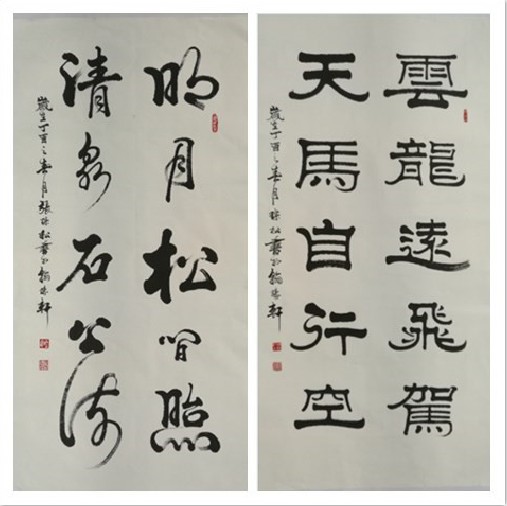 明月松間照
清泉石上流
歲在丁酉之春月張松書於翰軒
雲龍遠飛駕
天馬自行空
歲在丁酉之春月松書於翰軒